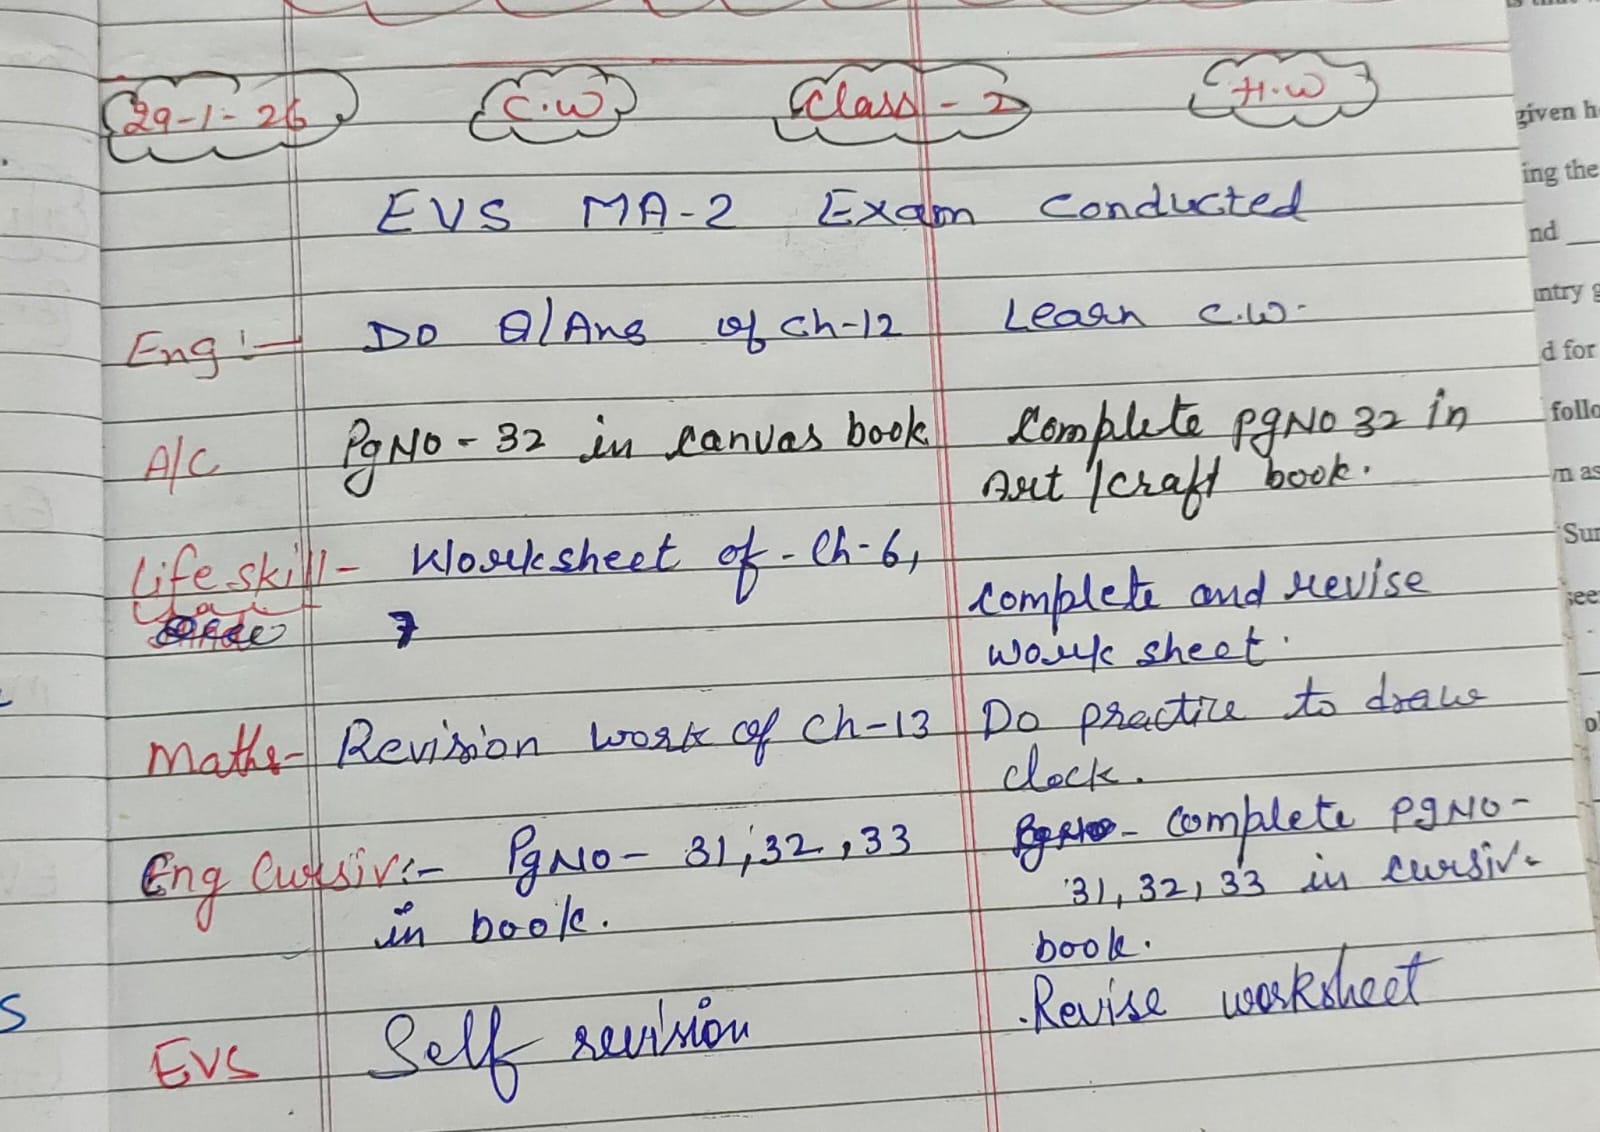 29-1-26 C.W Class - 2 H.W
EVS MA-2 Exam Conducted
Eng :- Do Q/Ans of Ch-12 Learn C.W.
A/C PgNO - 32 in canvas book Complete PgNO 32 in
Art / craft book.
Life skill - Worksheet of - Ch-6,
7
complete and revise
work sheet.
Maths - Revision work of Ch-13 Do practice to draw
clock.
Eng Cursiv :- PgNO - 31, 32, 33
in book.
Complete PgNO -
31, 32, 33 in cursiv.
book.
EVS Self revision
. Revise worksheet
given h
ing the
nd
ntry g
d for
follo
m as
Sur
see
S